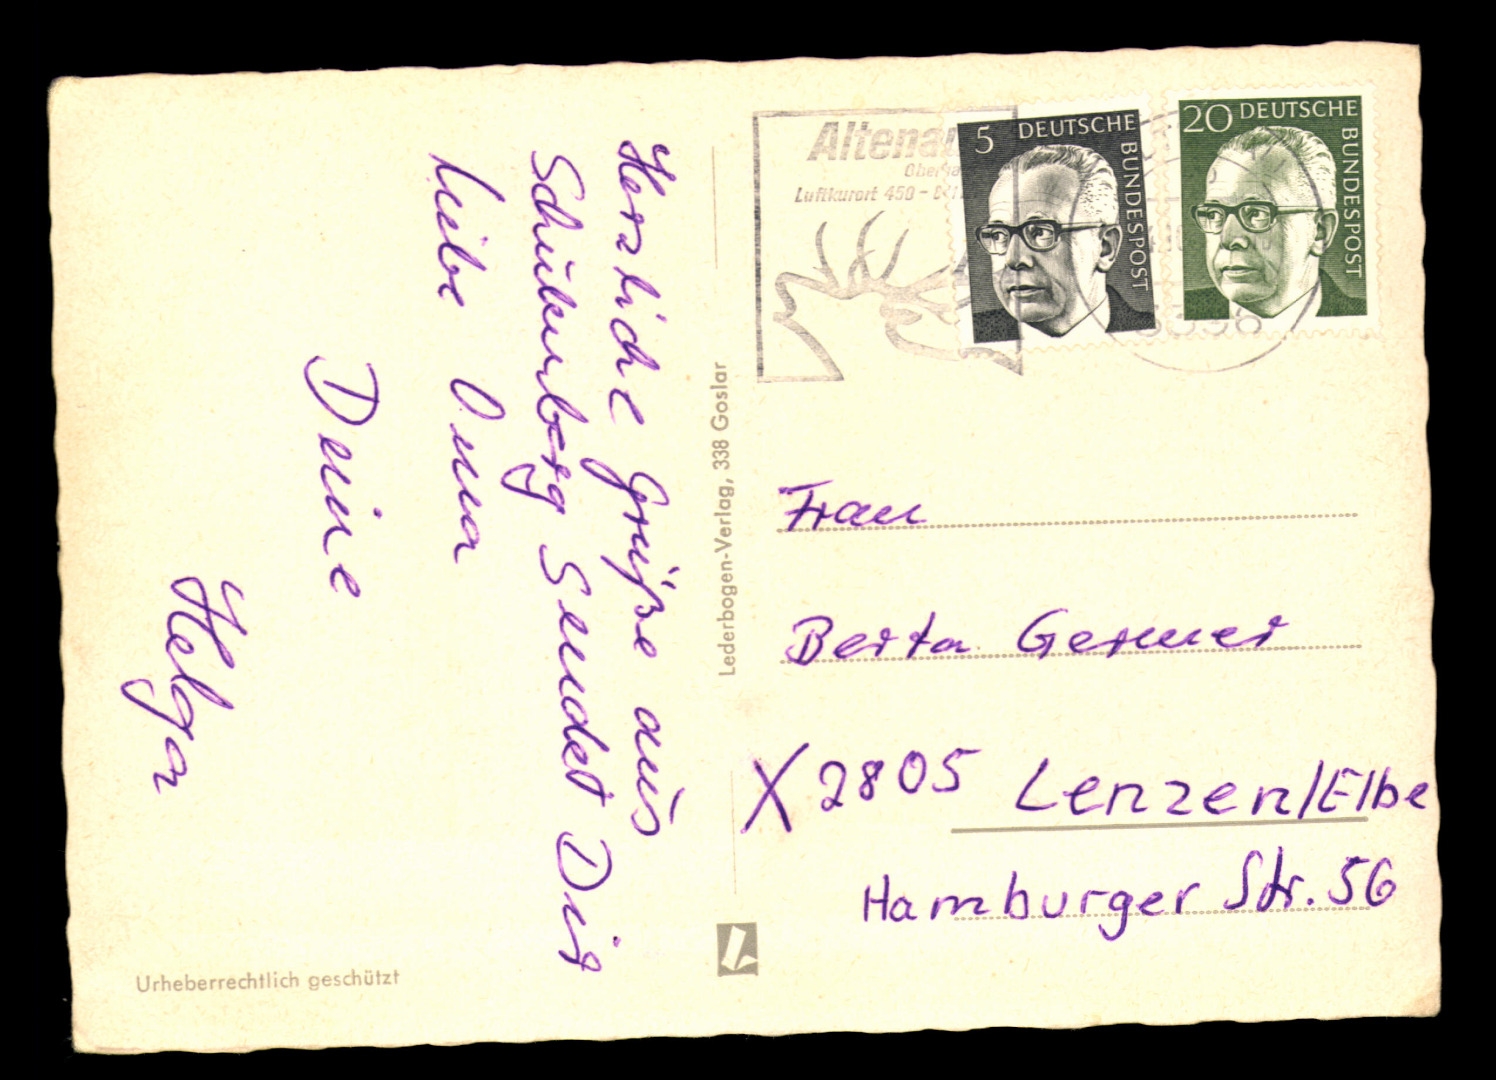 Herzliche Grüße aus
Schulenberg sendet Dir
liebe Oma
Deine
Helga
Urheberrechtlich geschützt
Lederbogen-Verlag, 338 Goslar
Altenau
Luftkurort 450 –
5 DEUTSCHE BUNDESPOST
20 DEUTSCHE BUNDESPOST
Frau
Berta Germer
X 2805 Lenzen/Elbe
Hamburger Str. 56